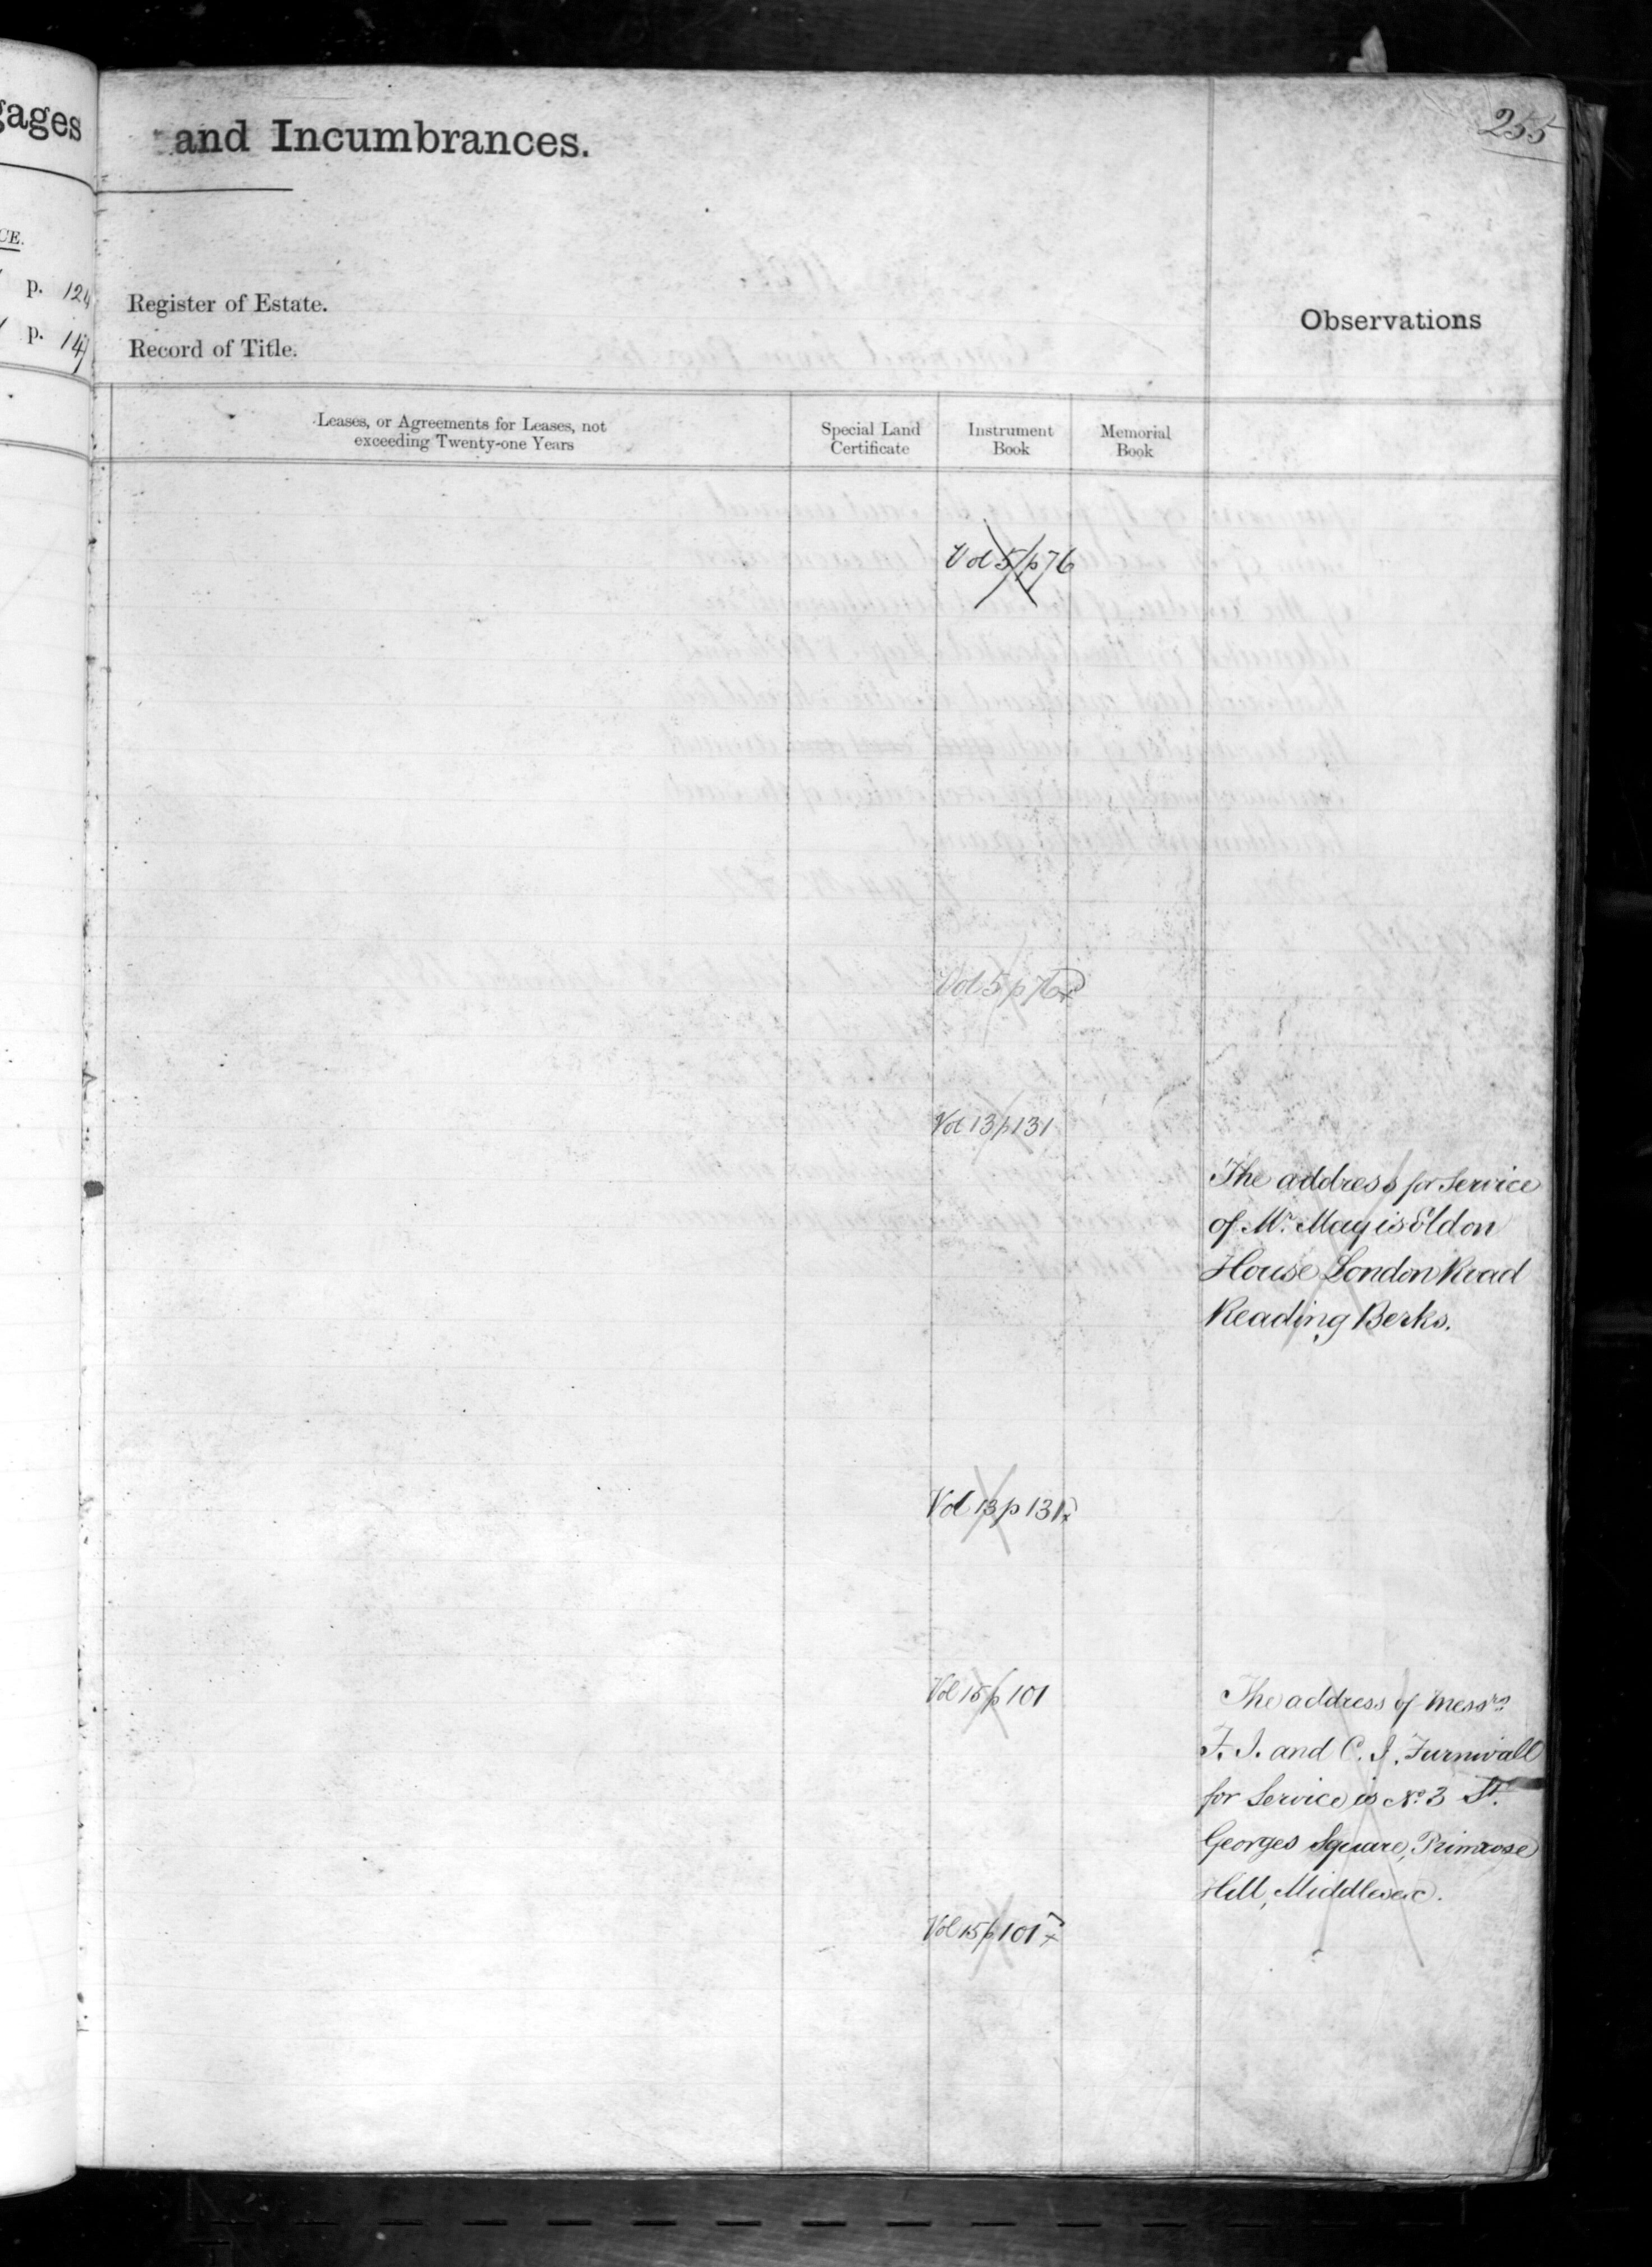 gages
and Incumbrances.
255
CE.
p. 124
Register of Estate.
p. 147
Record of Title.
Observations
Leases, or Agreements for Leases, not
exceeding Twenty-one Years
Special Land
Certificate
Instrument
Book
Memorial
Book
Vol 5 p 76
Vol 5 p 76
Vol 13 p 131
The address for Service
of Mr. May is Eldon
House London Road
Reading Berks.
Vol 13 p 131
Vol 15 p 101
The address of Messrs
F. J. and C. J. Furnivall
for Service is No. 3 St.
Georges Square, Primrose
Hill, Middlesex.
Vol 15 p 101